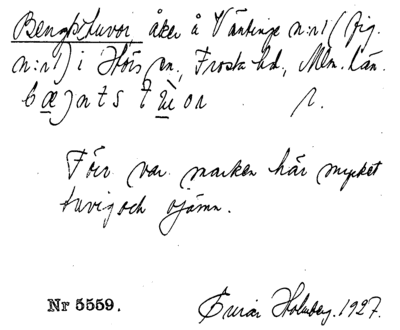 Bengtstuvor, åker å Väntinge n:r 1 (fig.
n:r 1) i Hörs sn, Frosta hd., Mlm. län.
r.
Förr var marken här mycket
tuvig och ojämn.
Nr 5559. Holmberg. 1927.